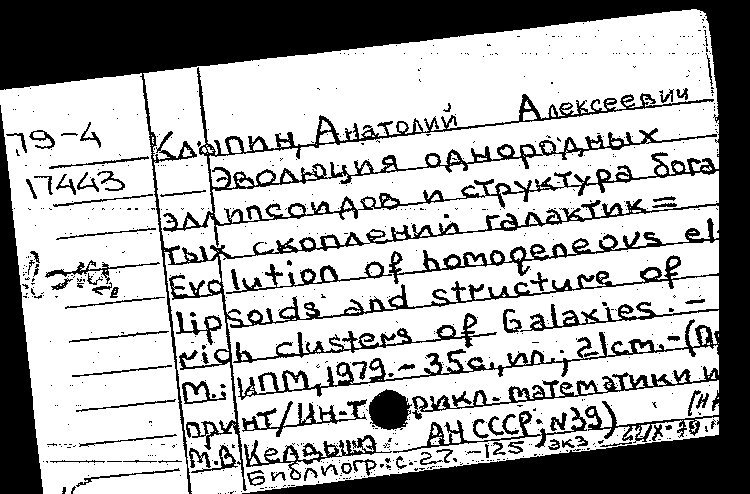 79-4 Клыпин, Анатолий Алексеевич
17443 Эволюция однородных
эллипсоидов и структура бога
тых скоплений галактик=
Evolution of homogeneous el
lipsoids and structure of
rich clusters of Galaxies. -
М.: ИПМ, 1979. - 35с., ил.; 21см. - (Пр
принт/Ин-т прикл. математики и
М.В. Келдыша АН СССР; №39)
Библиогр.: с. 27. - 125 экз.